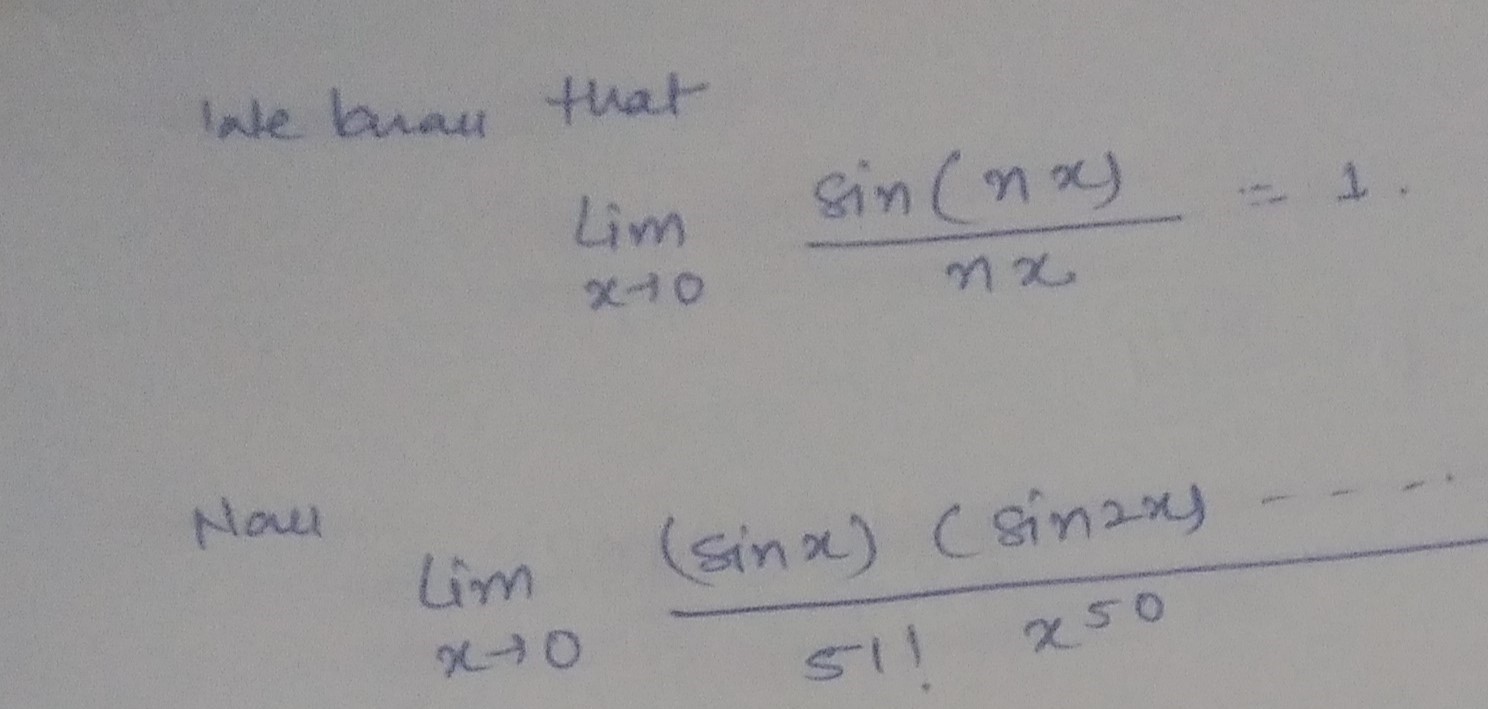 We know that
Lim x→0 sin(nx) / nx = 1.
Now Lim x→0 (sinx) (sin2x) - - - - / 51! x^50